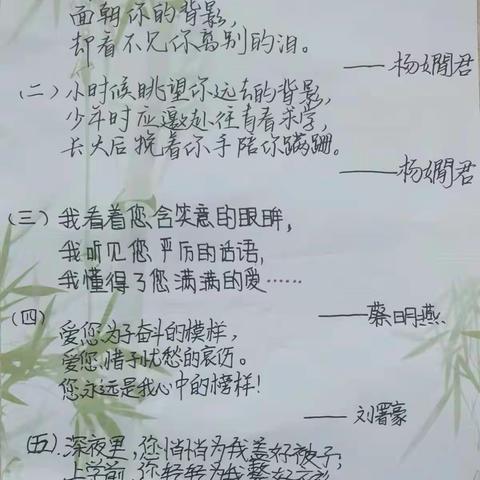 面朝你的背影,
却看不见你离别的泪。
——杨嫺君
(二)小时候眺望你远去的背影,
少年时应邀赴往青春求学,
长大后挽着你手陪你蹒跚。
——杨嫺君
(三)我看着您含笑意的眼眸,
我听见您严厉的话语,
我懂得了您满满的爱……
——蔡明燕
(四)
爱您为子奋斗的模样,
爱您惜子忧愁的哀伤。
您永远是我心中的榜样!
——刘署豪
(五).深夜里,您悄悄为我盖好被子;
上学前,您轻轻为我整好衣衫